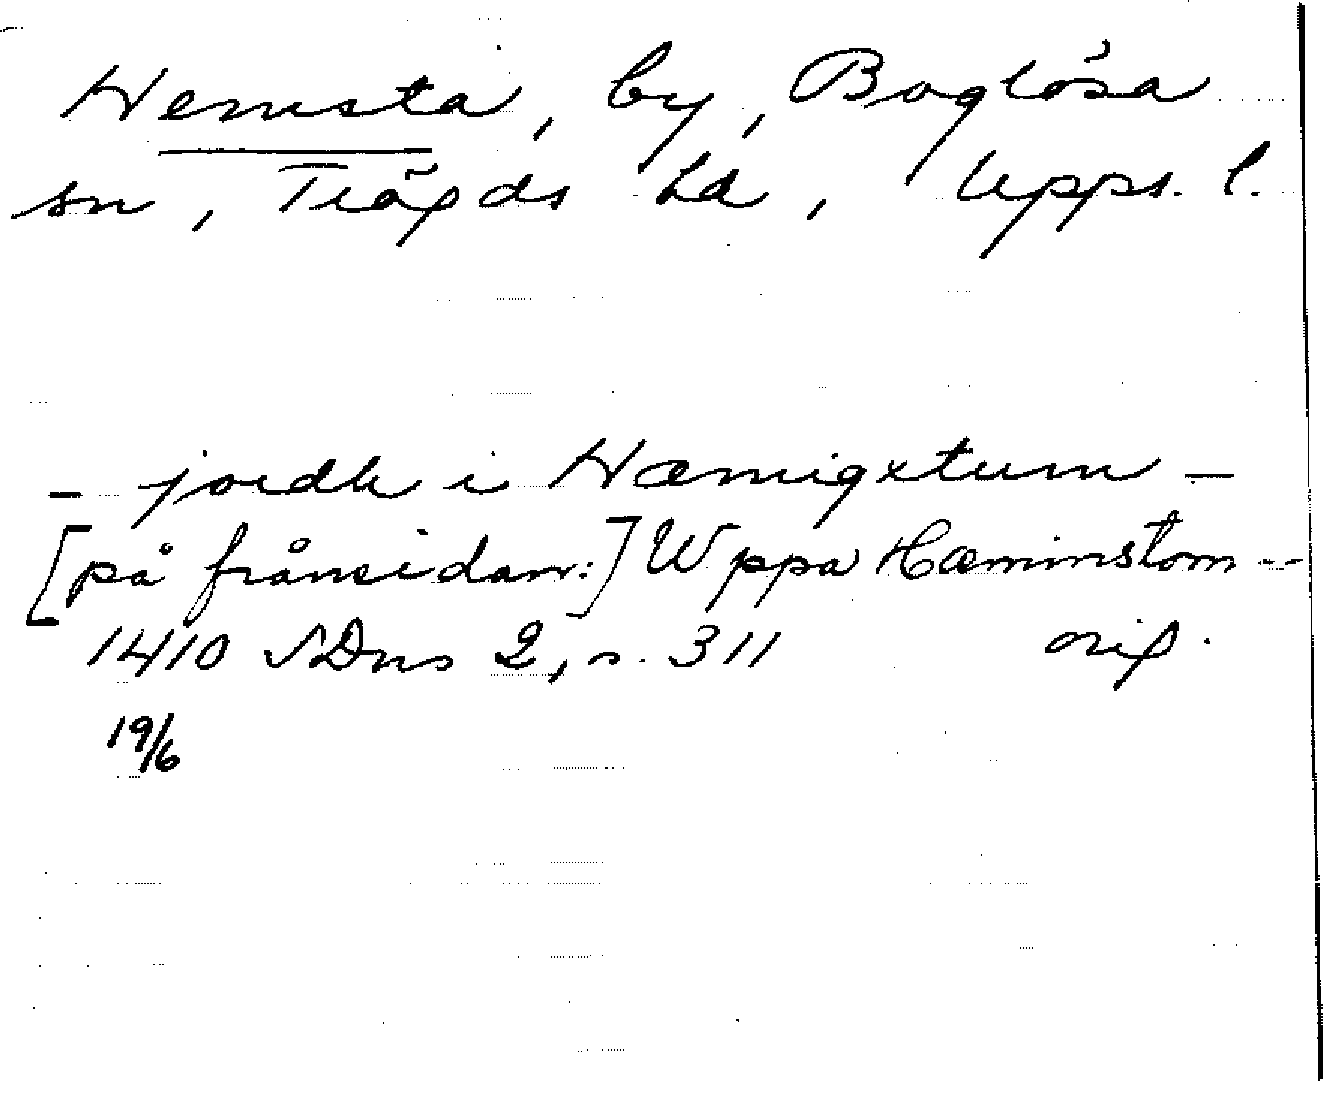 Hemsta, by, Boglösa
sn, Trögds hd, Upps. l.
– jordh i Hæmigxtum –
[på frånsidan:] Wppa Hæminstom --
1410 SDns 2, s. 311 orig.
19/6